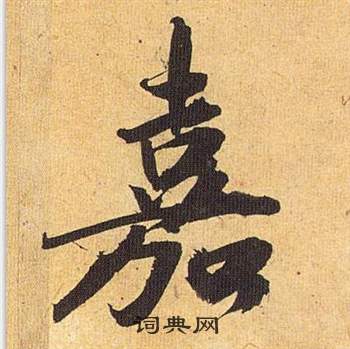 嘉
词典网